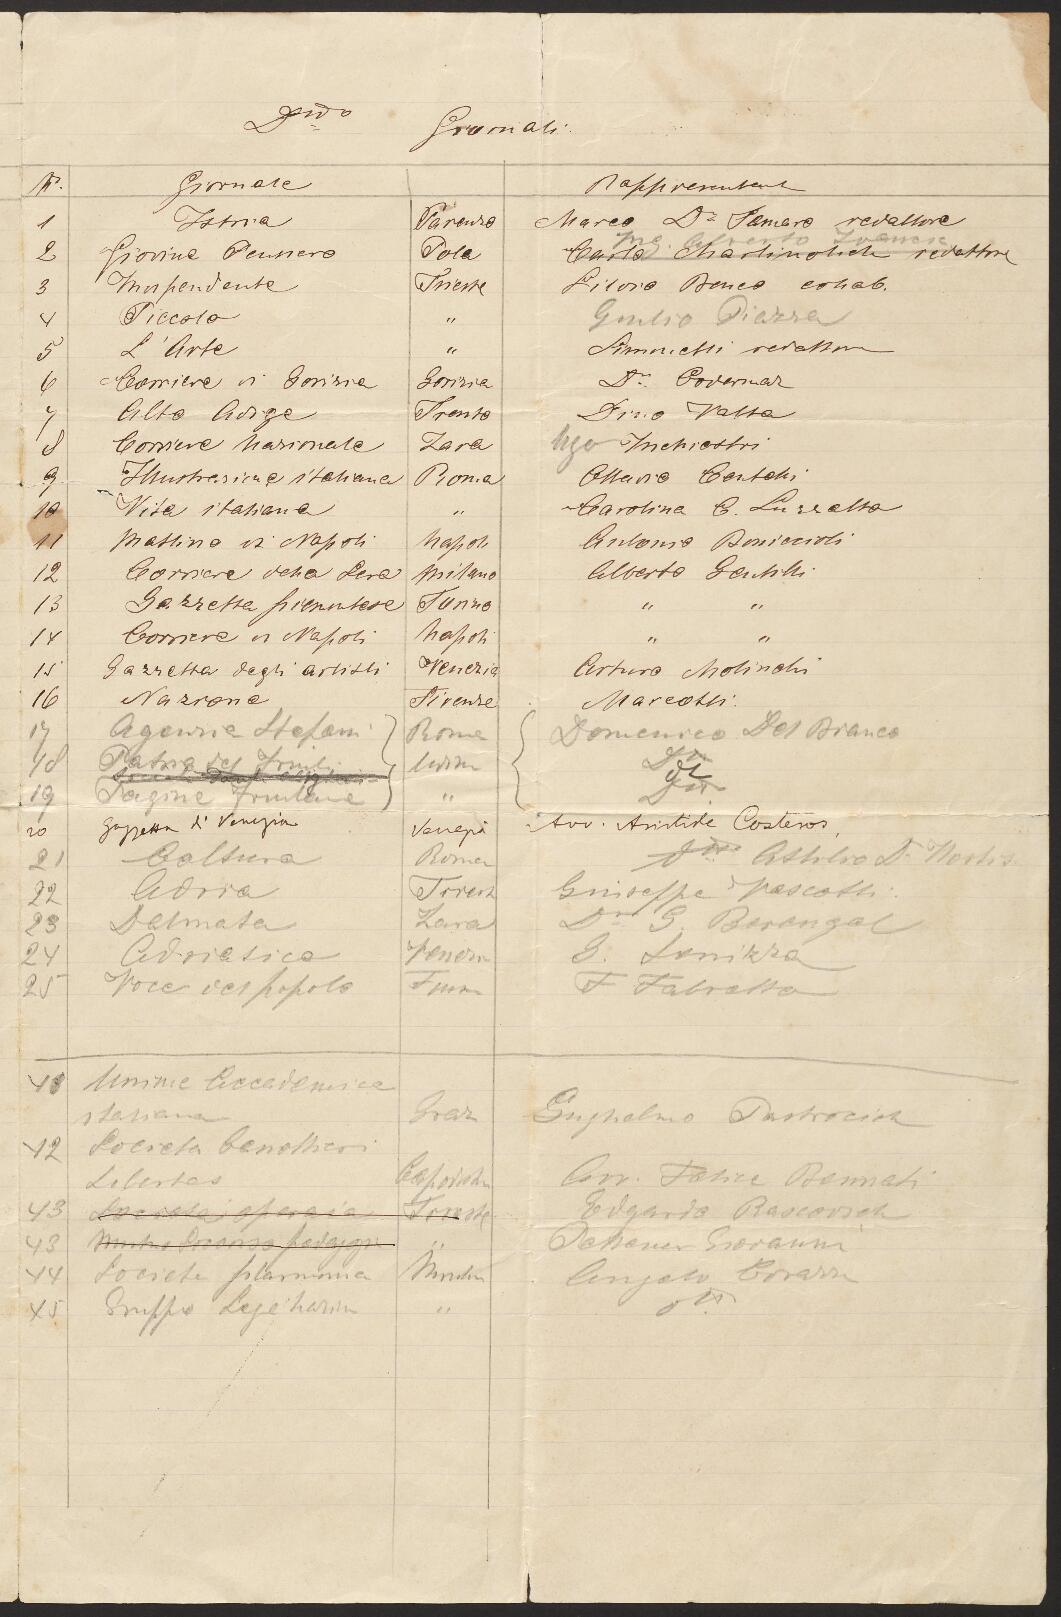 Giornali.
N. Giornale Rappresentante
1 Istria Parenzo Marco Dr. Tamaro redattore
Ing. Alberto
2 Giovine Pensiero Pola Carlo Martinolich redattore
3 Indipendente Trieste Silvio Benco collab.
4 Piccolo " Giulio Piazza
5 L'Arte " Simonetti redattore
6 Corriere di Gorizia Gorizia Dr. Podermaz
7 Alto Adige Trento Dino Valsa
8 Corriere Nazionale Zara Ugo Inchiostri
9 Illustrazione italiana Roma Ottavio
10 Vita italiana " Carolina C. Luzzatto
11 Mattino di Napoli Napoli Antonio Boniccioli
12 Corriere della Sera Milano Alberto Gentilli
13 Gazzetta piemontese Torino " "
14 Corriere di Napoli Napoli " "
15 Gazzetta degli artisti Venezia Arturo
16 Nazione Firenze Marcotti.
17 Agenzia Stefani Roma Domenico Del Bianco
18 Patria del Friuli Udine
19 Pagine Friulane "
20 Gazzetta di Venezia Venezia Avv. Aristide Costeros
21 Coltura Roma Attilio Dr. Hortis
22 Adria Trieste Giuseppe Vascotti.
23 Dalmata Zara Dr. G. Boxengal
24 Adriatico Venezia G.
25 Voce del popolo Fiume F
41 Unione Accademica
italiana Graz Guglielmo
42 Società Canottieri
Libertas Capodistria Avv. Felice Bennati
43 Società operaia Trieste Edgardo Rascovich
43 " Giovanni
44 Società filarmonica Angelo Corazza
45 Gruppo Lega Nazion "